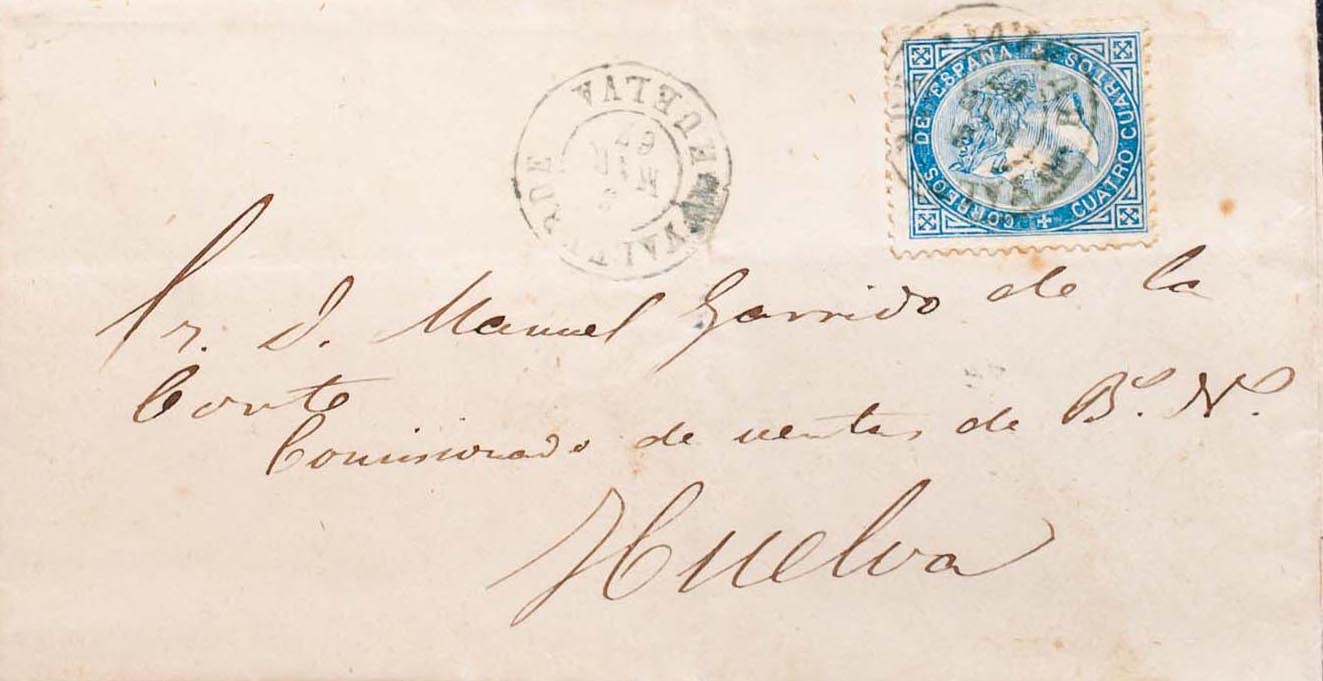 HUELVA
VALVERDE
2
MAR
67
CORREOS DE ESPAÑA
CUATRO CUARTOS
Sr. D. Manuel Garrido de la
Corte
Comisionado de ventas de B.s N.s
Huelva